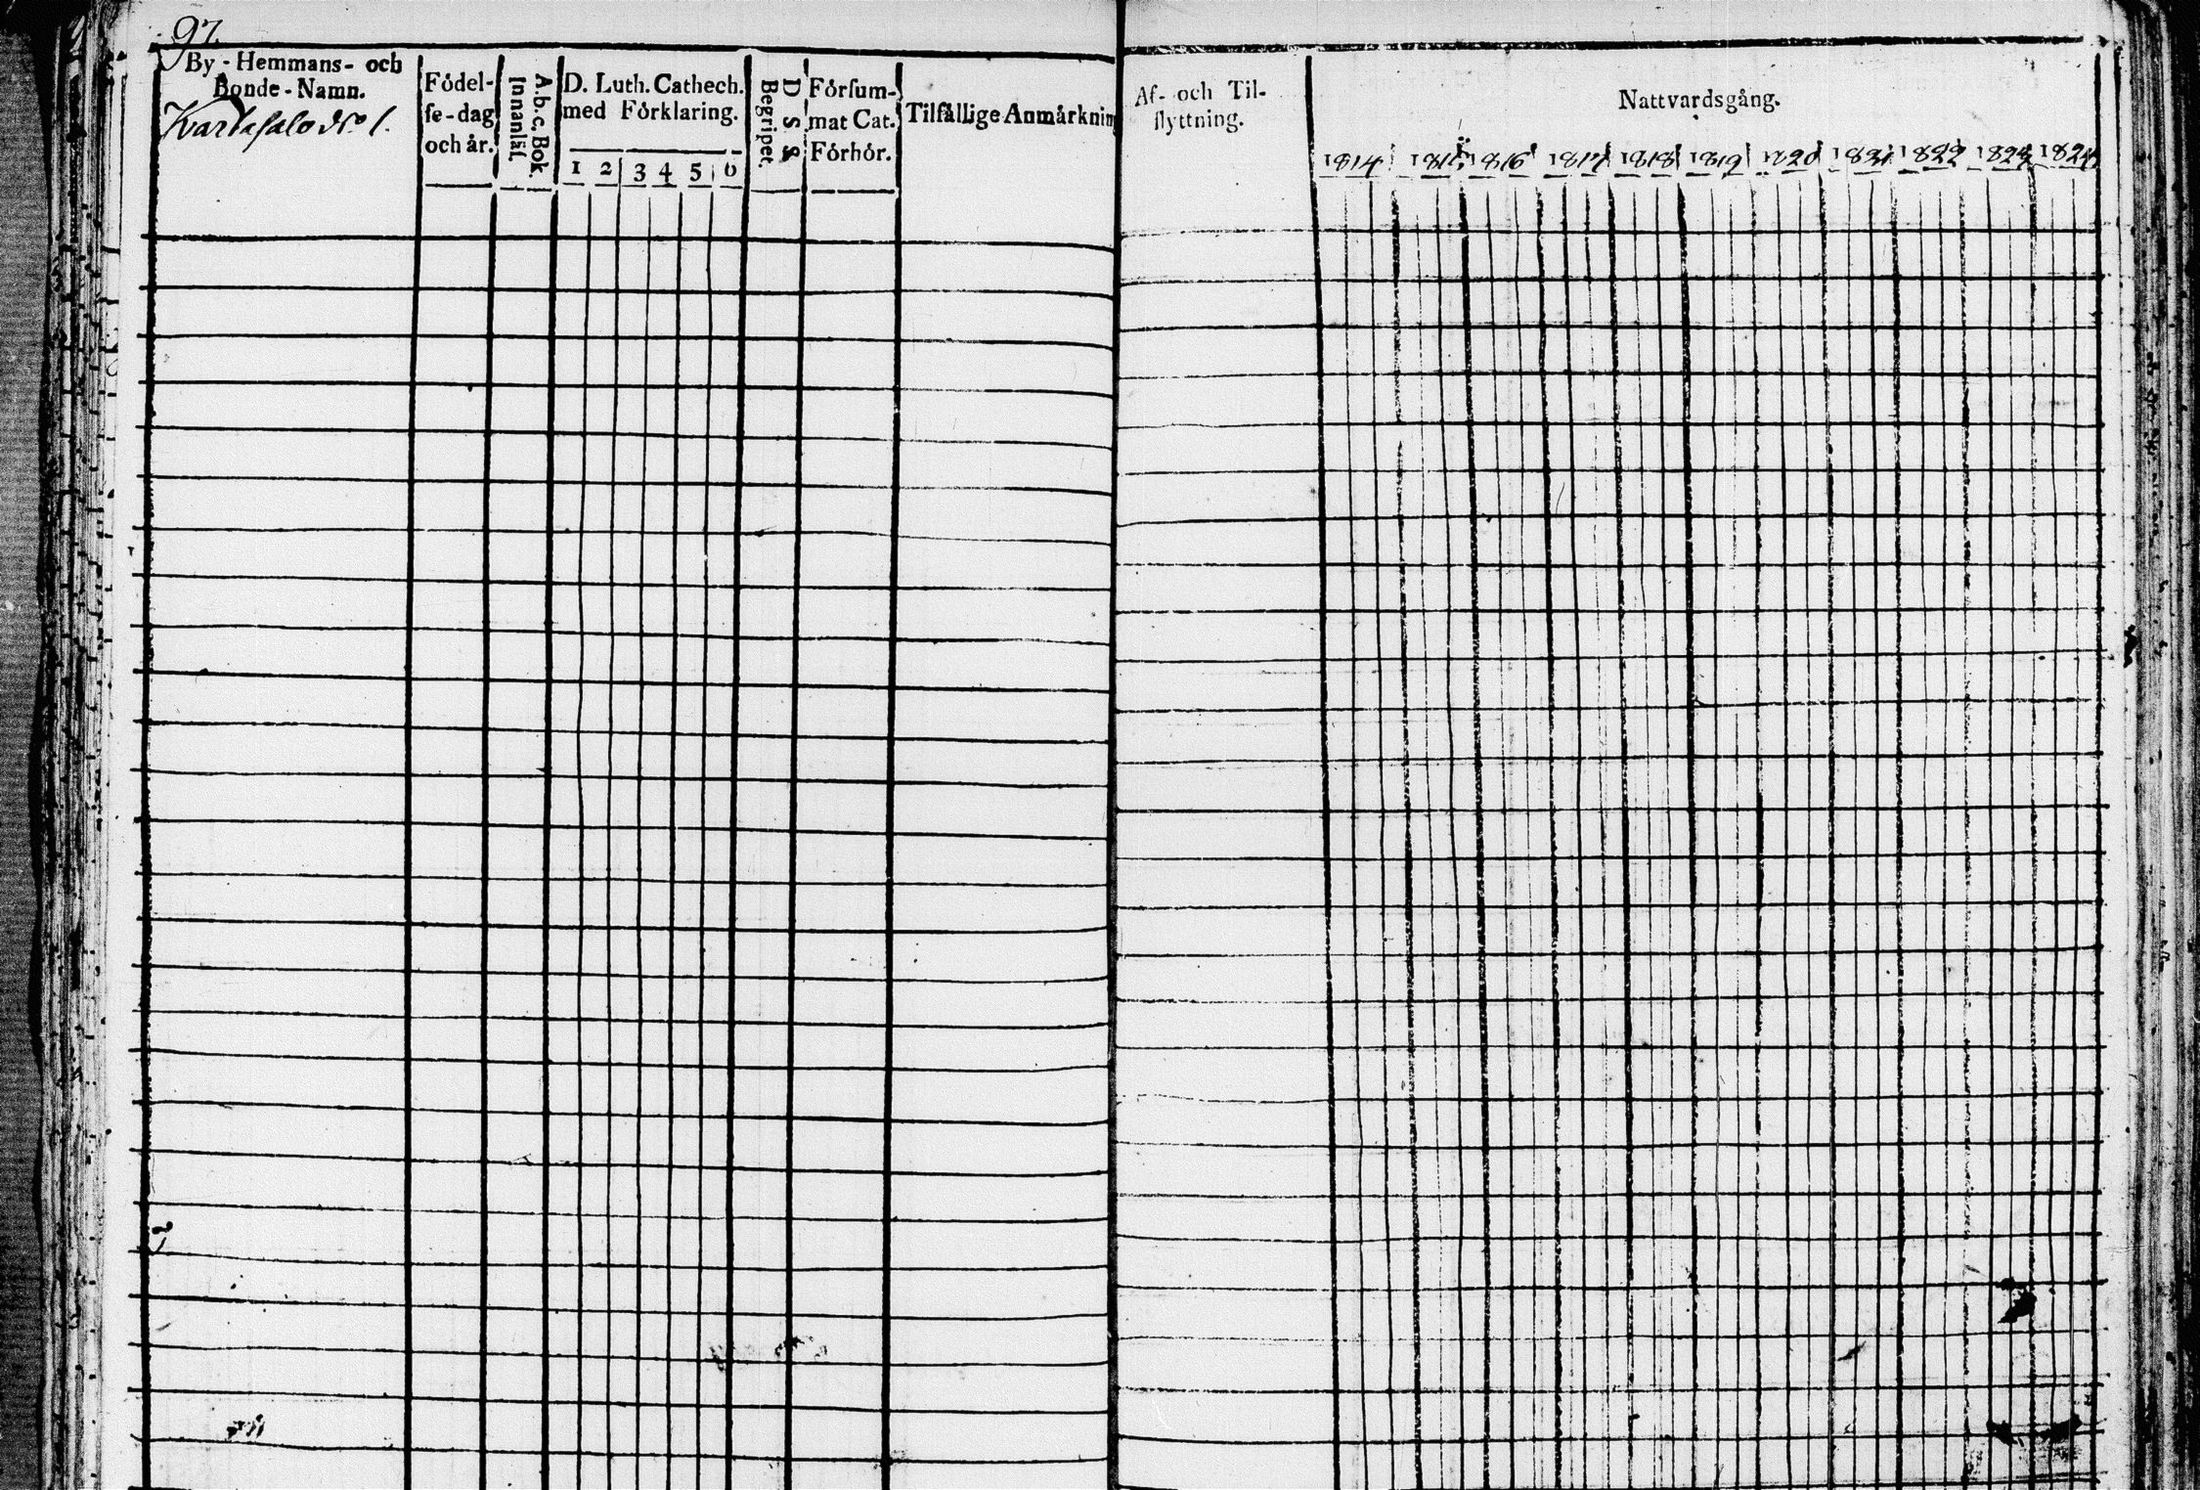 97.
By-Hemmans- och
Bonde-Namn.
Kvartasalo No 1.
Födel-
se-dag
och år.
A.b.c. Bok.
Innanläs.
D. Luth. Cathech.
med Förklaring.
1 2 3 4 5 6
D. S. S.
Begripet.
Försum-
mat Cat.
Förhör.
Tilfällige Anmärknin
Af- och Til-
flyttning.
Nattvardsgång.
1814 1815 1816 1817 1818 1819 1820 1821 1822 1823 1824